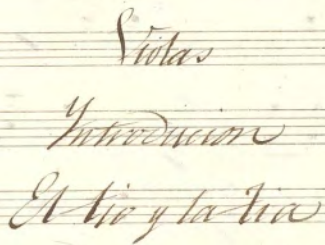 Violas
Introducion
El tio y la tia